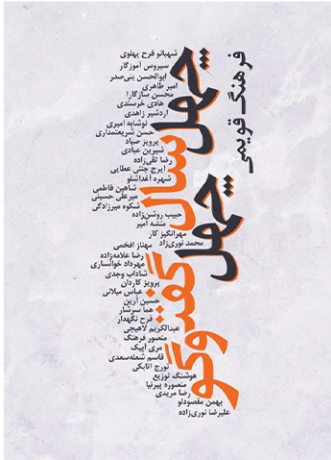 فرهنگ قویمی
چهل سال
چهل گفت‌وگو
شهبانو فرح پهلوی
سیروس آموزگار
ابوالحسن بنی‌صدر
امیر طاهری
محسن سازگارا
هادی خرسندی
اردشیر زاهدی
نوشابه امیری
حسن شریعتمداری
پرویز صیاد
شیرین عبادی
رضا تقی‌زاده
ایرج جنتی عطایی
شهره آغداشلو
شاهین فاطمی
میرعلی حسینی
شکوه میرزادگی
حبیب روشن‌زاده
منشه امیر
مهرانگیز کار
محمد نوری‌زاد
مهناز افخمی
رضا علامه‌زاده
مهرداد خوانساری
شاداب وجدی
پرویز کاردان
عباس میلانی
حسین آرین
هما سرشار
فرح نگهدار
عبدالکریم لاهیجی
منصور فرهنگ
مری آپیک
قاسم شعله‌سعدی
تورج اتابکی
هوشنگ توزیع
منصوره پیرنیا
رضا مریدی
بهمن مقصودلو
علیرضا نوری‌زاده